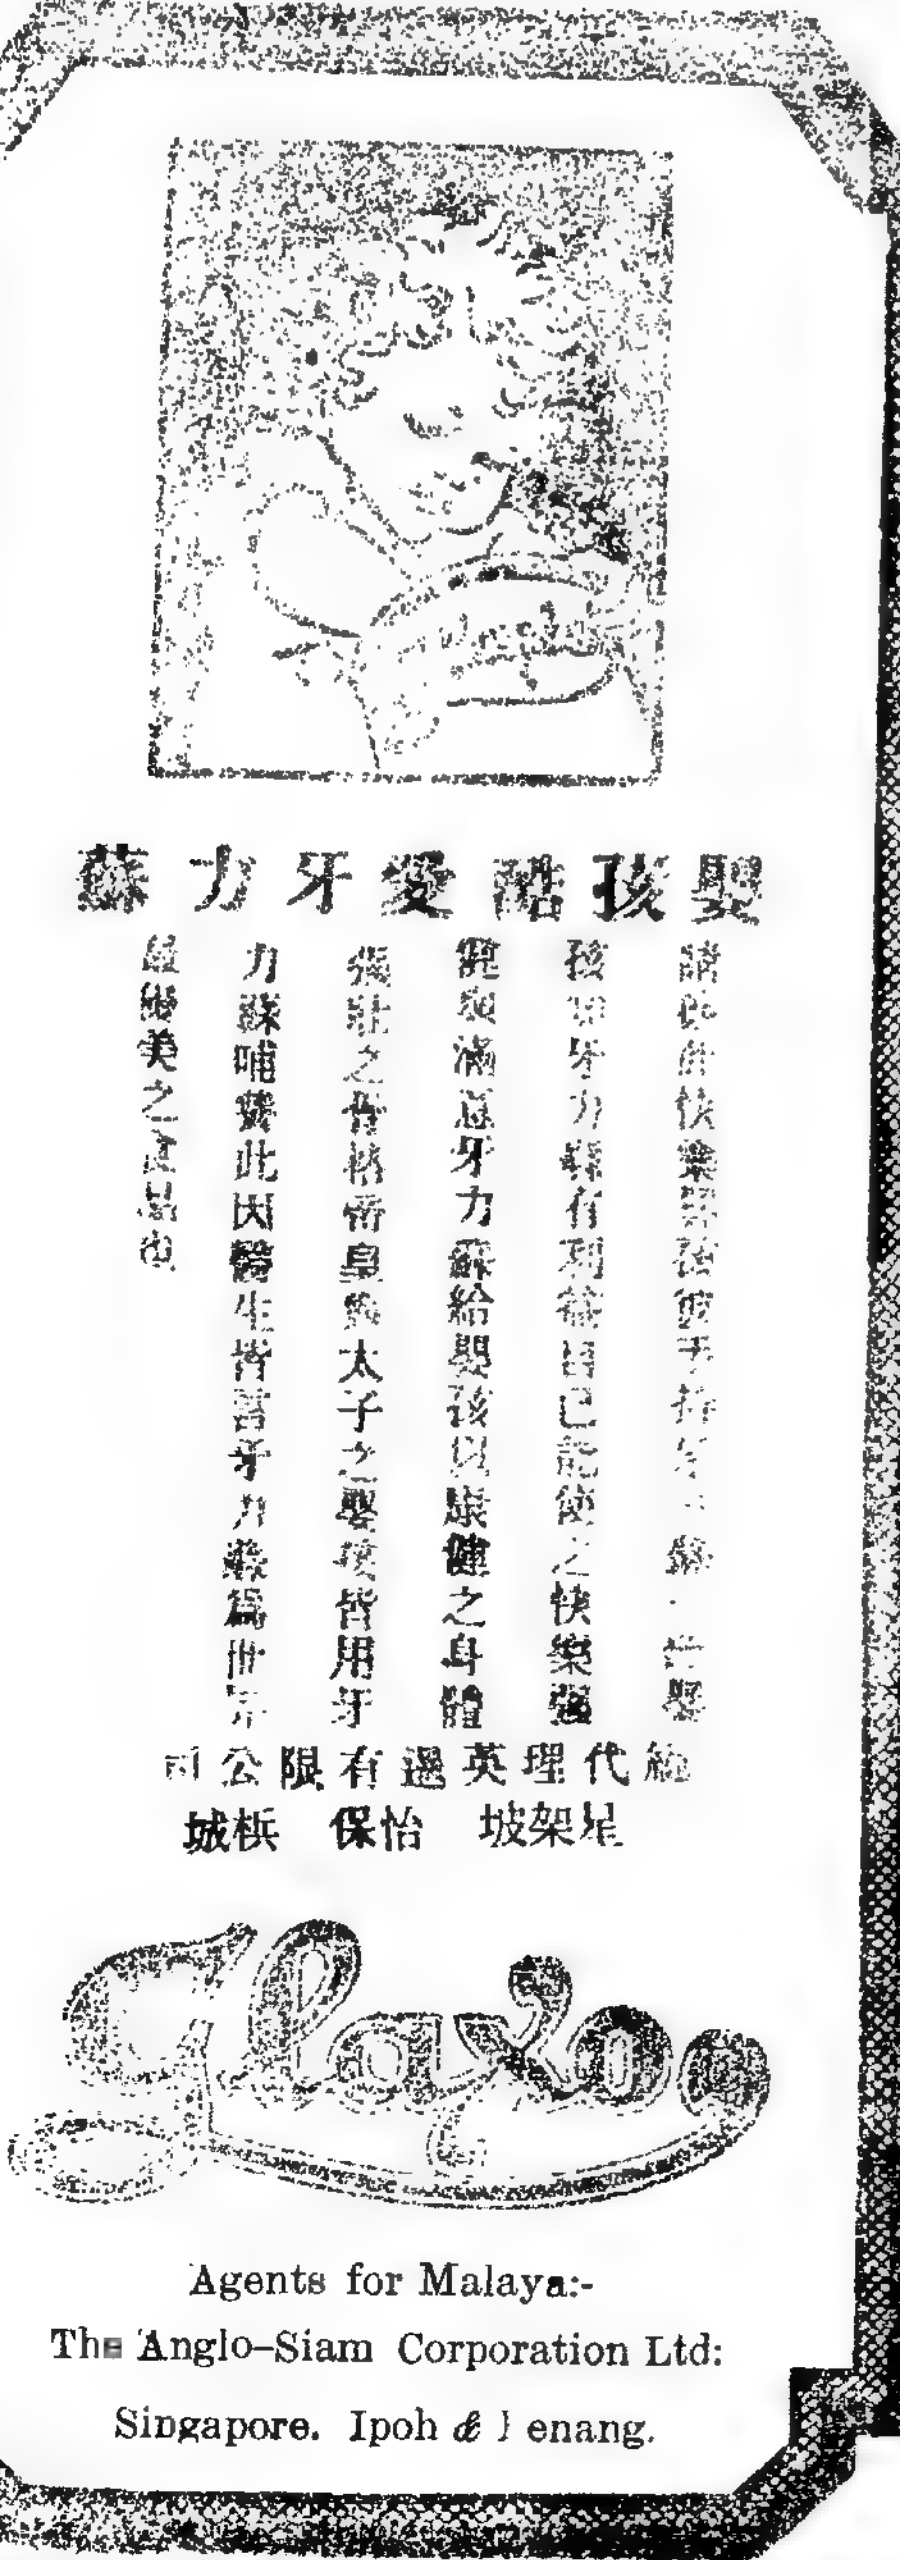 嬰孩酷愛牙力蘇
請 快樂嬰孩彼手持 蘇 嬰
孩 牙力蘇有利益自己能使之快樂強
健與滿意牙力蘇給嬰孩以康健之身體
強壯之骨格帝皇與太子之嬰孩皆用牙
力蘇哺養此因醫生皆言牙力蘇為世界
最優美之食品也
總代理英暹有限公司
星架坡 怡保 梹城
Glaxo
Agents for Malaya:-
The Anglo–Siam Corporation Ltd:
Singapore. Ipoh & Penang.